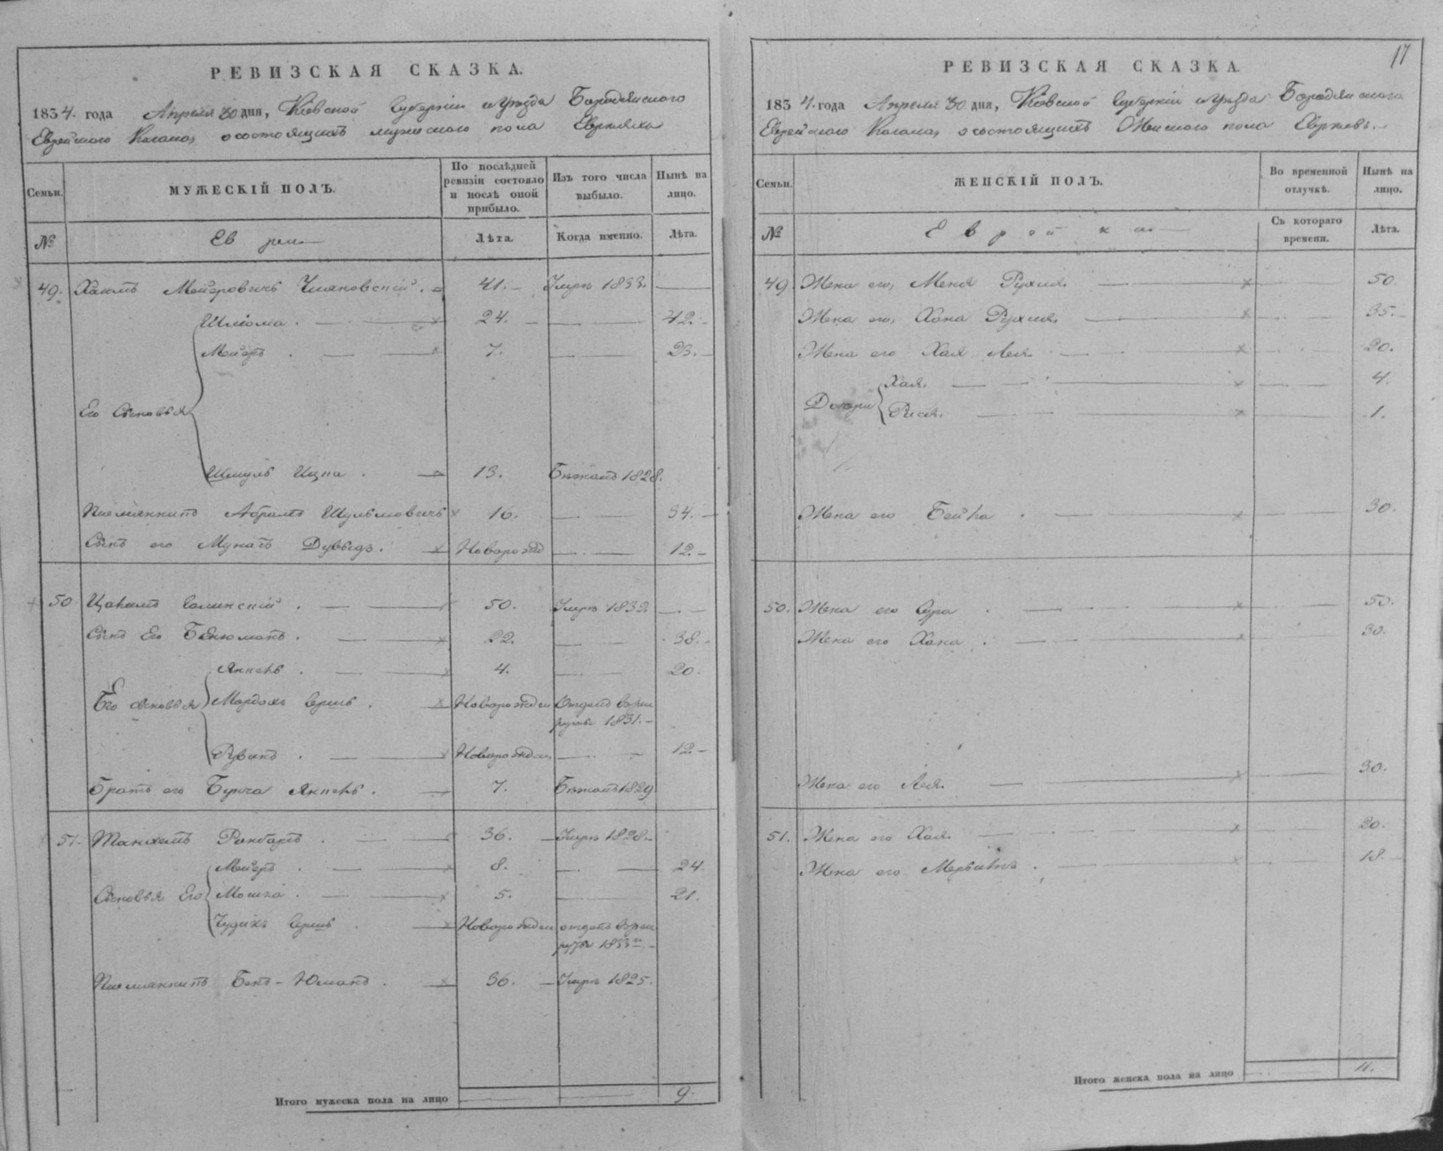 РЕВИЗСКАЯ СКАЗКА.
1834. года Апреля 30 дня, Киевской Губерніи и Уезда Бородянского
Еврейского Кагала, о состоящихъ мужеского пола Евреяхъ
Семьи.
МУЖЕСКІЙ ПОЛЪ.
По послѣдней ревизіи состояло и послѣ оной прибыло.
Изъ того числа выбыло.
Нынѣ на лицо.
№
Евреи
Лѣта.
Когда именно.
Лѣта.
49. Хаимъ Мейеровичъ 41. Умръ 1833.
Шлиома. 24. 42.
Мейеръ. 7. 23.
Его Сыновья
Шмуль Ицка. 13. Бежалъ 1828.
Племянникъ Абрамъ Шульмовичъ 16. 34.
Сынъ его Дувыдъ. Новорожд 12.
50 50. Умръ 1832
Сынъ Его Бенюманъ. 22. 38.
Янкель. 4. 20.
Его Сыновья Мордохъ Гершъ. Новорожден Отданъ въ рек
руты 1831.
Рувинъ. Новорожден 12.
Братъ его Янкель. 7. Бежалъ 1829
51. 36. Умръ 1828.
Мейеръ. 8. 24
Сыновья Его Мошка. 5. 21.
Гершъ. Новорожден отданъ в рек
руты 1833
Племянникъ Бенъ-Юманъ. 36. Умръ 1825.
Итого мужеска пола на лицо 9.
17
РЕВИЗСКАЯ СКАЗКА.
1834. года Апреля 30 дня, Киевской Губерніи и Уезда Бородянского
Еврейского Кагала, о состоящихъ Женского пола Евреевъ.
Семьи.
ЖЕНСКІЙ ПОЛЪ.
Во временной отлучкѣ.
Нынѣ на лицо.
№
Еврейки
Съ котораго времени.
Лѣта.
49 Жена его, Меня Рухля. 50.
Жена его, Хана Рухля. 35.
Жена его Хая Лея. 20.
Хая. 4.
Дочери
Рися. 1.
Жена его Бейла. 30.
50. Жена его Сура. 50.
Жена его Хана. 30.
Жена его Лея. 30.
51. Жена его Хая. 20.
Жена его 18.
Итого женска пола на лицо 11.